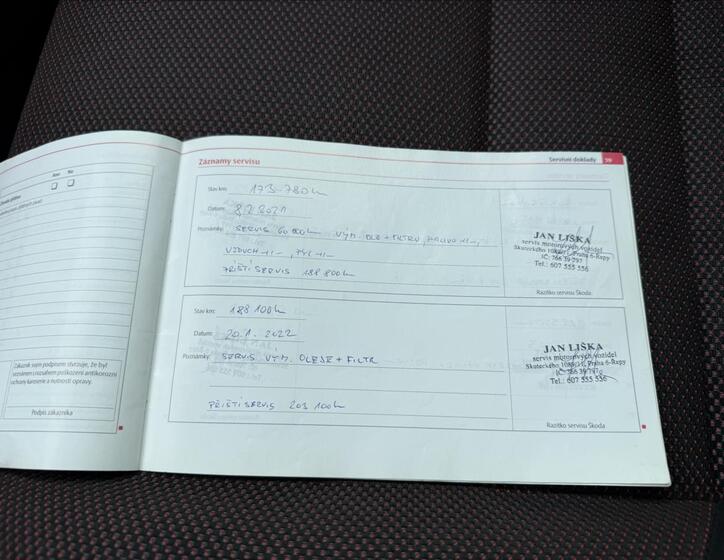 Ano Ne
Zákazník svým podpisem stvrzuje, že byl
seznámen s rozsahem poškození antikorozní
ochrany karoserie a nutností opravy.
Podpis zákazníka
Záznamy servisu
Servisní doklady 39
Stav km: 173-780km
Datum: 8.2.2021
Poznámky: SERVIS 60 000km VÝM. OLE + FILTRU, PALIVO -11-,
VZDUCH -11-, PYL -11-
PŘÍŠTÍ SERVIS 188 800km
JAN LIŠKA
servis motorových vozidel
Skuteckého Praha 6-Řepy
IČ: 766 39 797
Tel.: 607 555 556
Razítko servisu Škoda
Stav km: 188 100km
Datum: 20.1.2022
Poznámky: SERVIS VÝM. OLEJE + FILTR
PŘÍŠTÍ SERVIS 203 100km
JAN LIŠKA
servis motorových vozidel
Skuteckého Praha 6-Řepy
IČ: 766 39 797
Tel.: 607 555 556
Razítko servisu Škoda